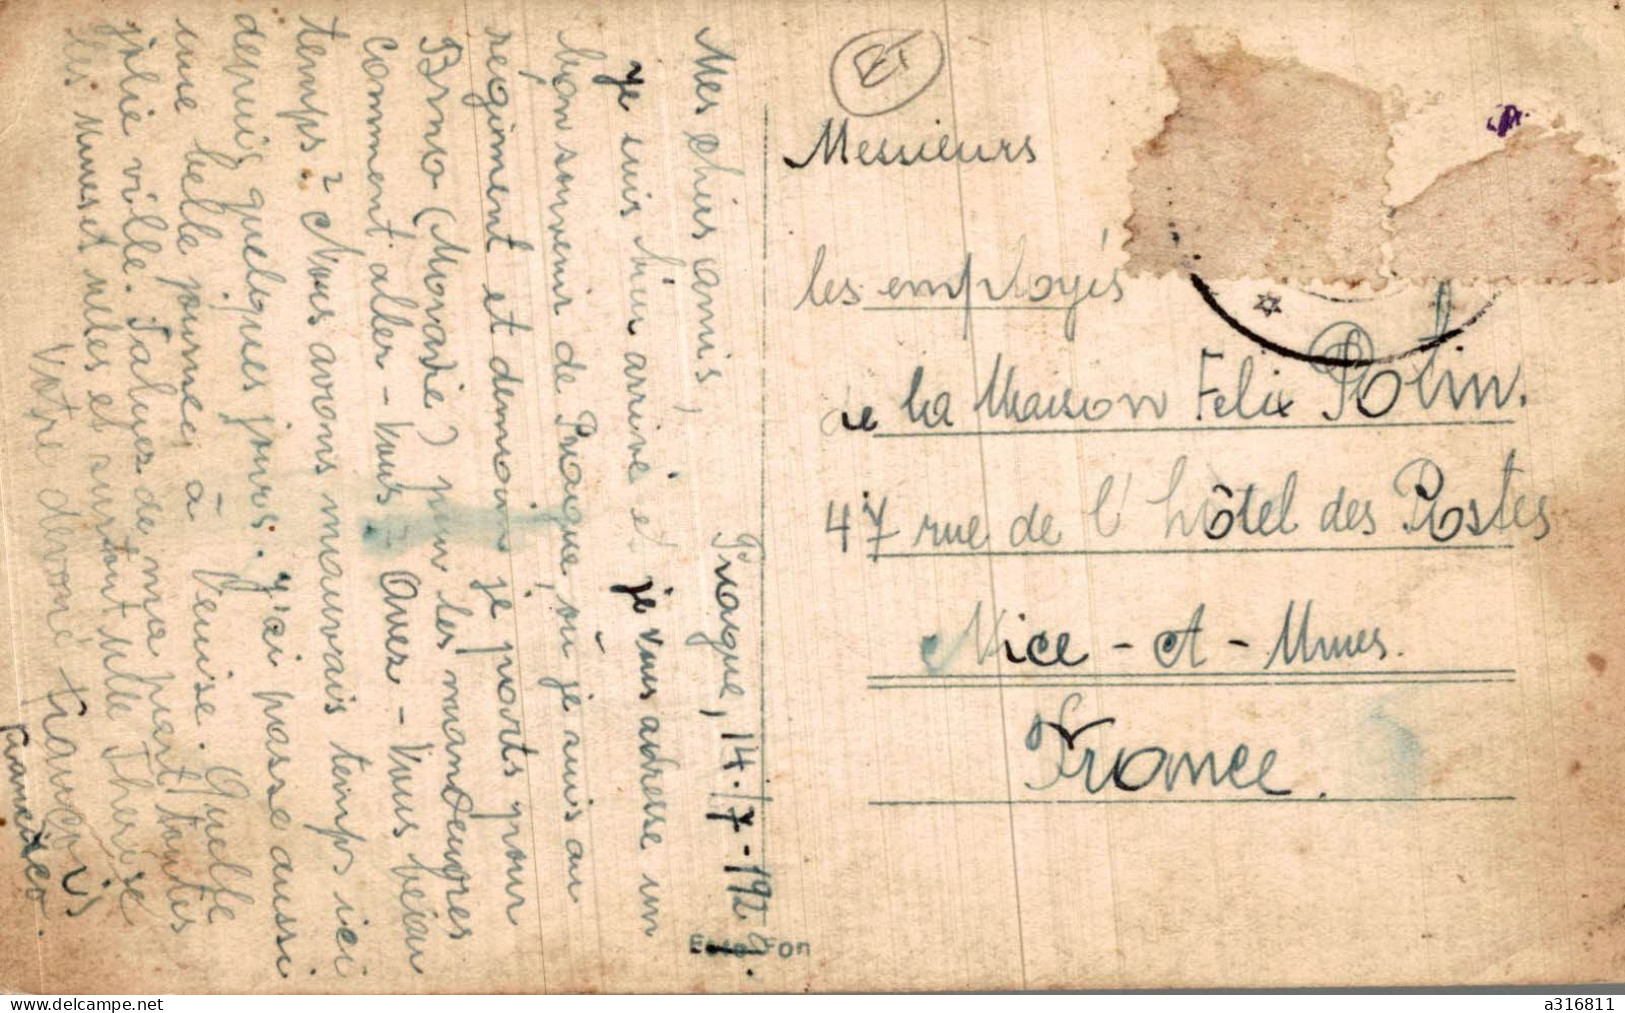 Prague, 14./7-192
Mes chers amis,
je suis hier arrivé et je vous adresse un
bon souvenir de Prague, où je suis au
régiment et demain je parts pour
Brno (Moravie) pour les manoeuvres
Comment aller-vous? Avez-vous beau
temps? Nous avons mauvais temps ici
depuis quelques jours. j'ai passé aussi
une belle journée à Venise. Quelle
jolie ville. Saluez de ma part toutes
les et surtout Mlle Therese
Votre devoué François
Francesco.
ET
Messieurs
les employés
de la Maison Felix Potin.
47 rue de l'hôtel des Postes
Nice-A-Mmes.
France.
Fon
a316811